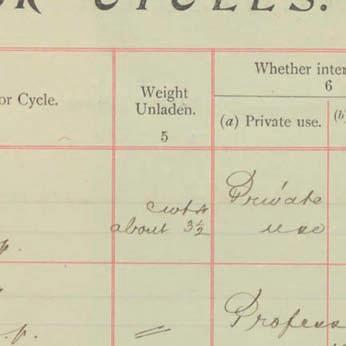 OR CYCLES.
Whether inter
6
or Cycle.
Weight
Unladen.
5
(a) Private use.
(b)
cwts
about 3½
Private
use
p.
Profess
. p.